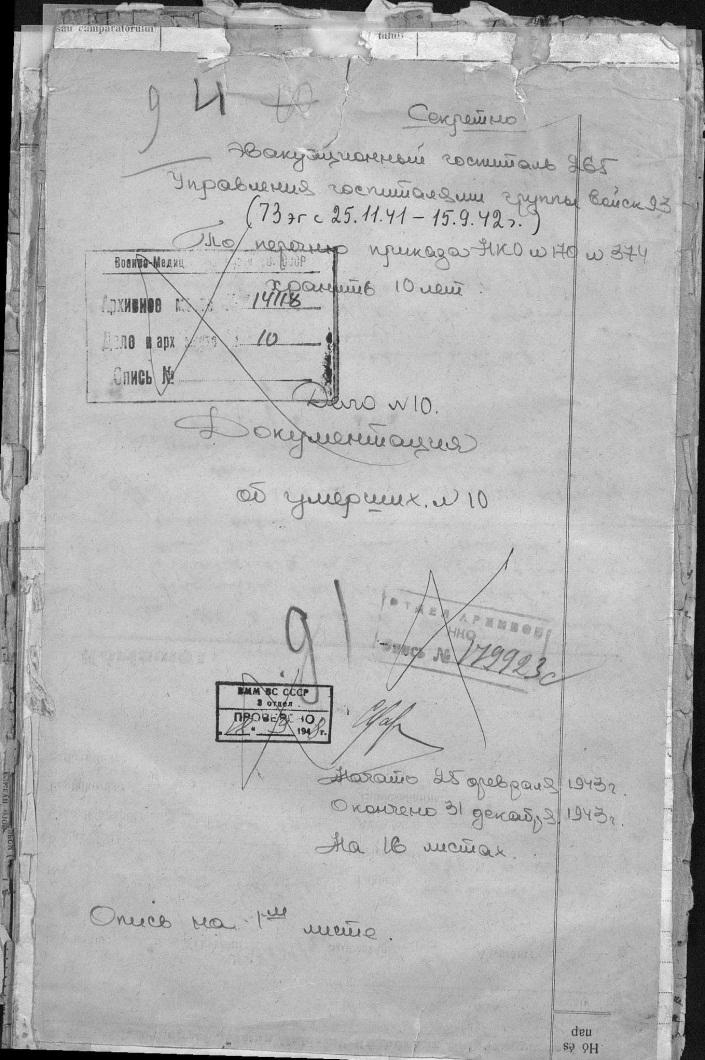 sau cumpărătorului
9 4
Секретно
Эвакуационный госпиталь 265
Управления госпиталями группы войск 23
(73 эг с 25.11.41 – 15.9.42 г.)
По перечню приказа НКО №170 №374
хранить 10 лет.
Военно-Медиц
Архивное 14118
Дело и арх 10
Опись №
Дело №10.
Документация
об умерших. №10
91
ОТДЕЛ АРХИВОВ
НКО
опись № 179923с
ВММ ВС СССР
3 отдел
ПРОВЕРЕНО
194 г.
Начато 25 февраля 1943 г.
Окончено 31 декабря 1943 г.
На 16 листах.
Опись на 1м листе.
Hó és
nap